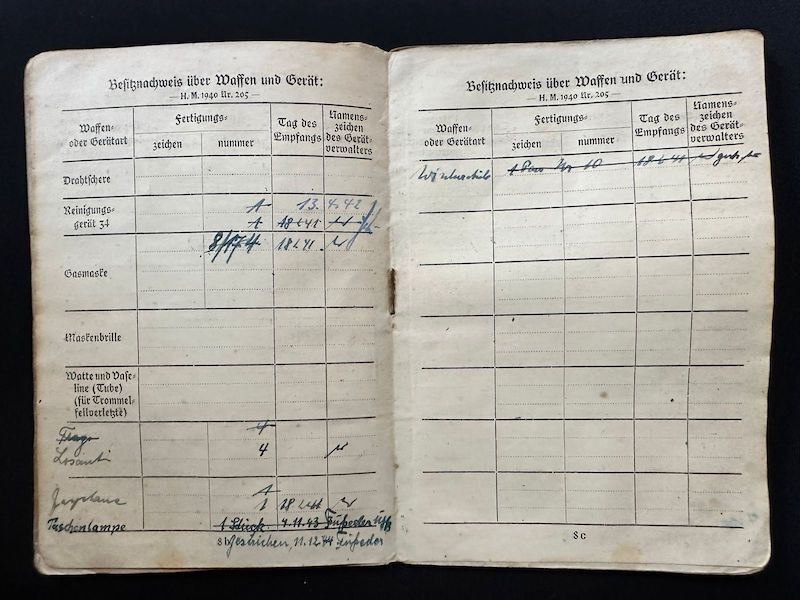 Besitznachweis über Waffen und Gerät:
— H. M. 1940 Nr. 205 —
Waffen- oder Geräteart
Fertigungs-
zeichen
nummer
Tag des Empfangs
Namens-zeichen des Gerät-verwalters
Drahtschere
Reinigungs-
gerät 34
1 13. 4. 42
1 18 4 41
8/174 18 4 41
Gasmaske
Maskenbrille
Watte und Vase-
line (Tube)
(für Trommel-
fellverletzte)
4
Losanti 4
1
1
Taschenlampe 1 Stück 4.11.43
8b gestrichen, 11.12.44
Besitznachweis über Waffen und Gerät:
— H. M. 1940 Nr. 205 —
Waffen-
oder Geräteart
Fertigungs-
zeichen
nummer
Tag des
Empfangs
Namens-
zeichen
des Gerät-
verwalters
1 Paar 10 18 4 41
8c